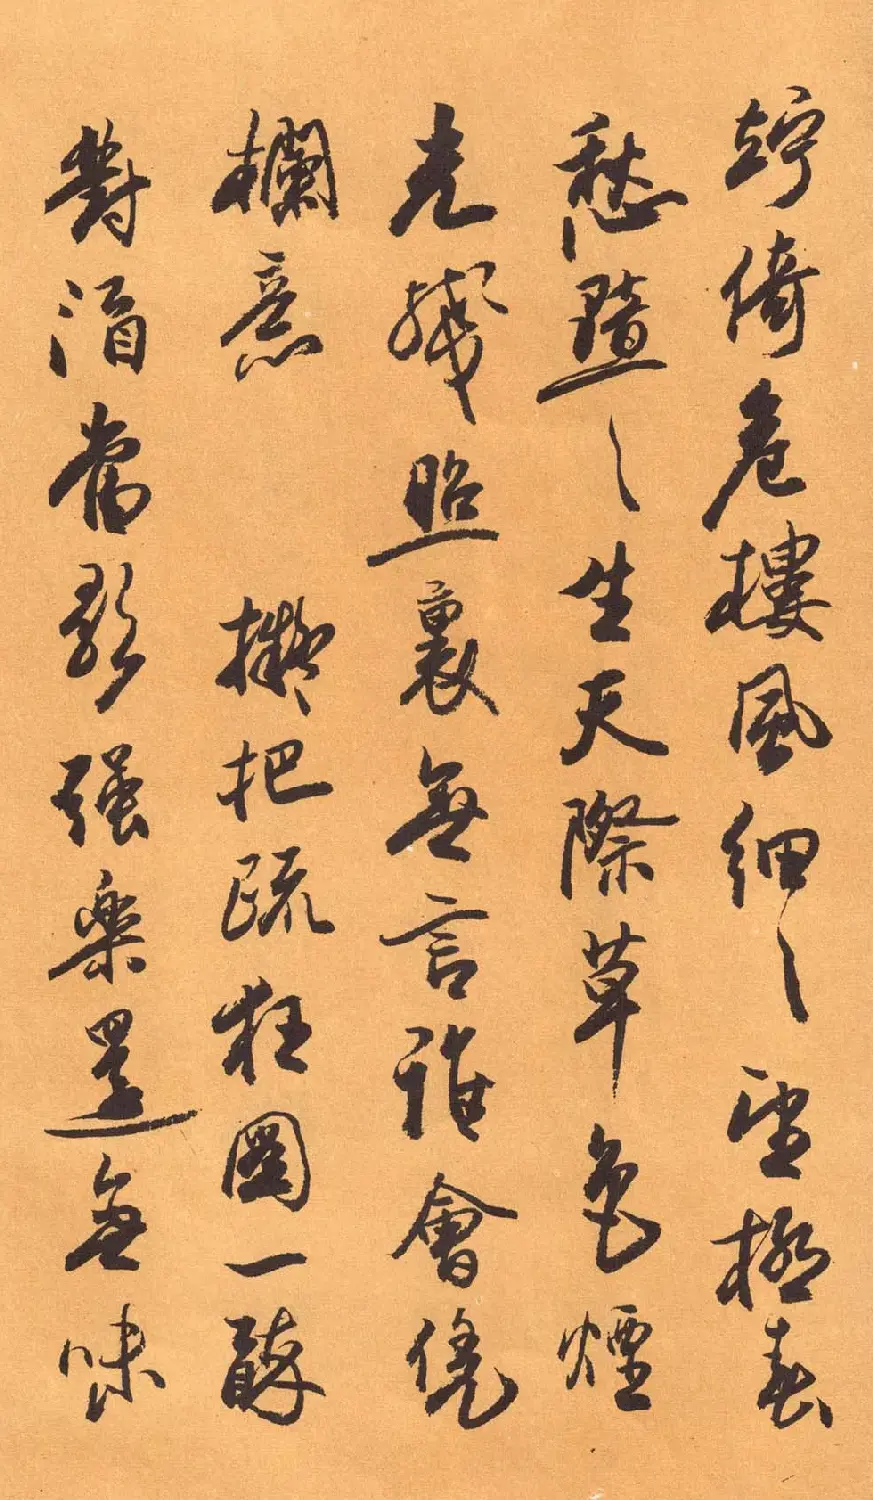 竚倚危樓風細〻望極春
愁黯〻生天際草色煙
光殘照裏無言誰會凭
欄意 擬把疏狂圖一醉
對酒當歌強樂還無味